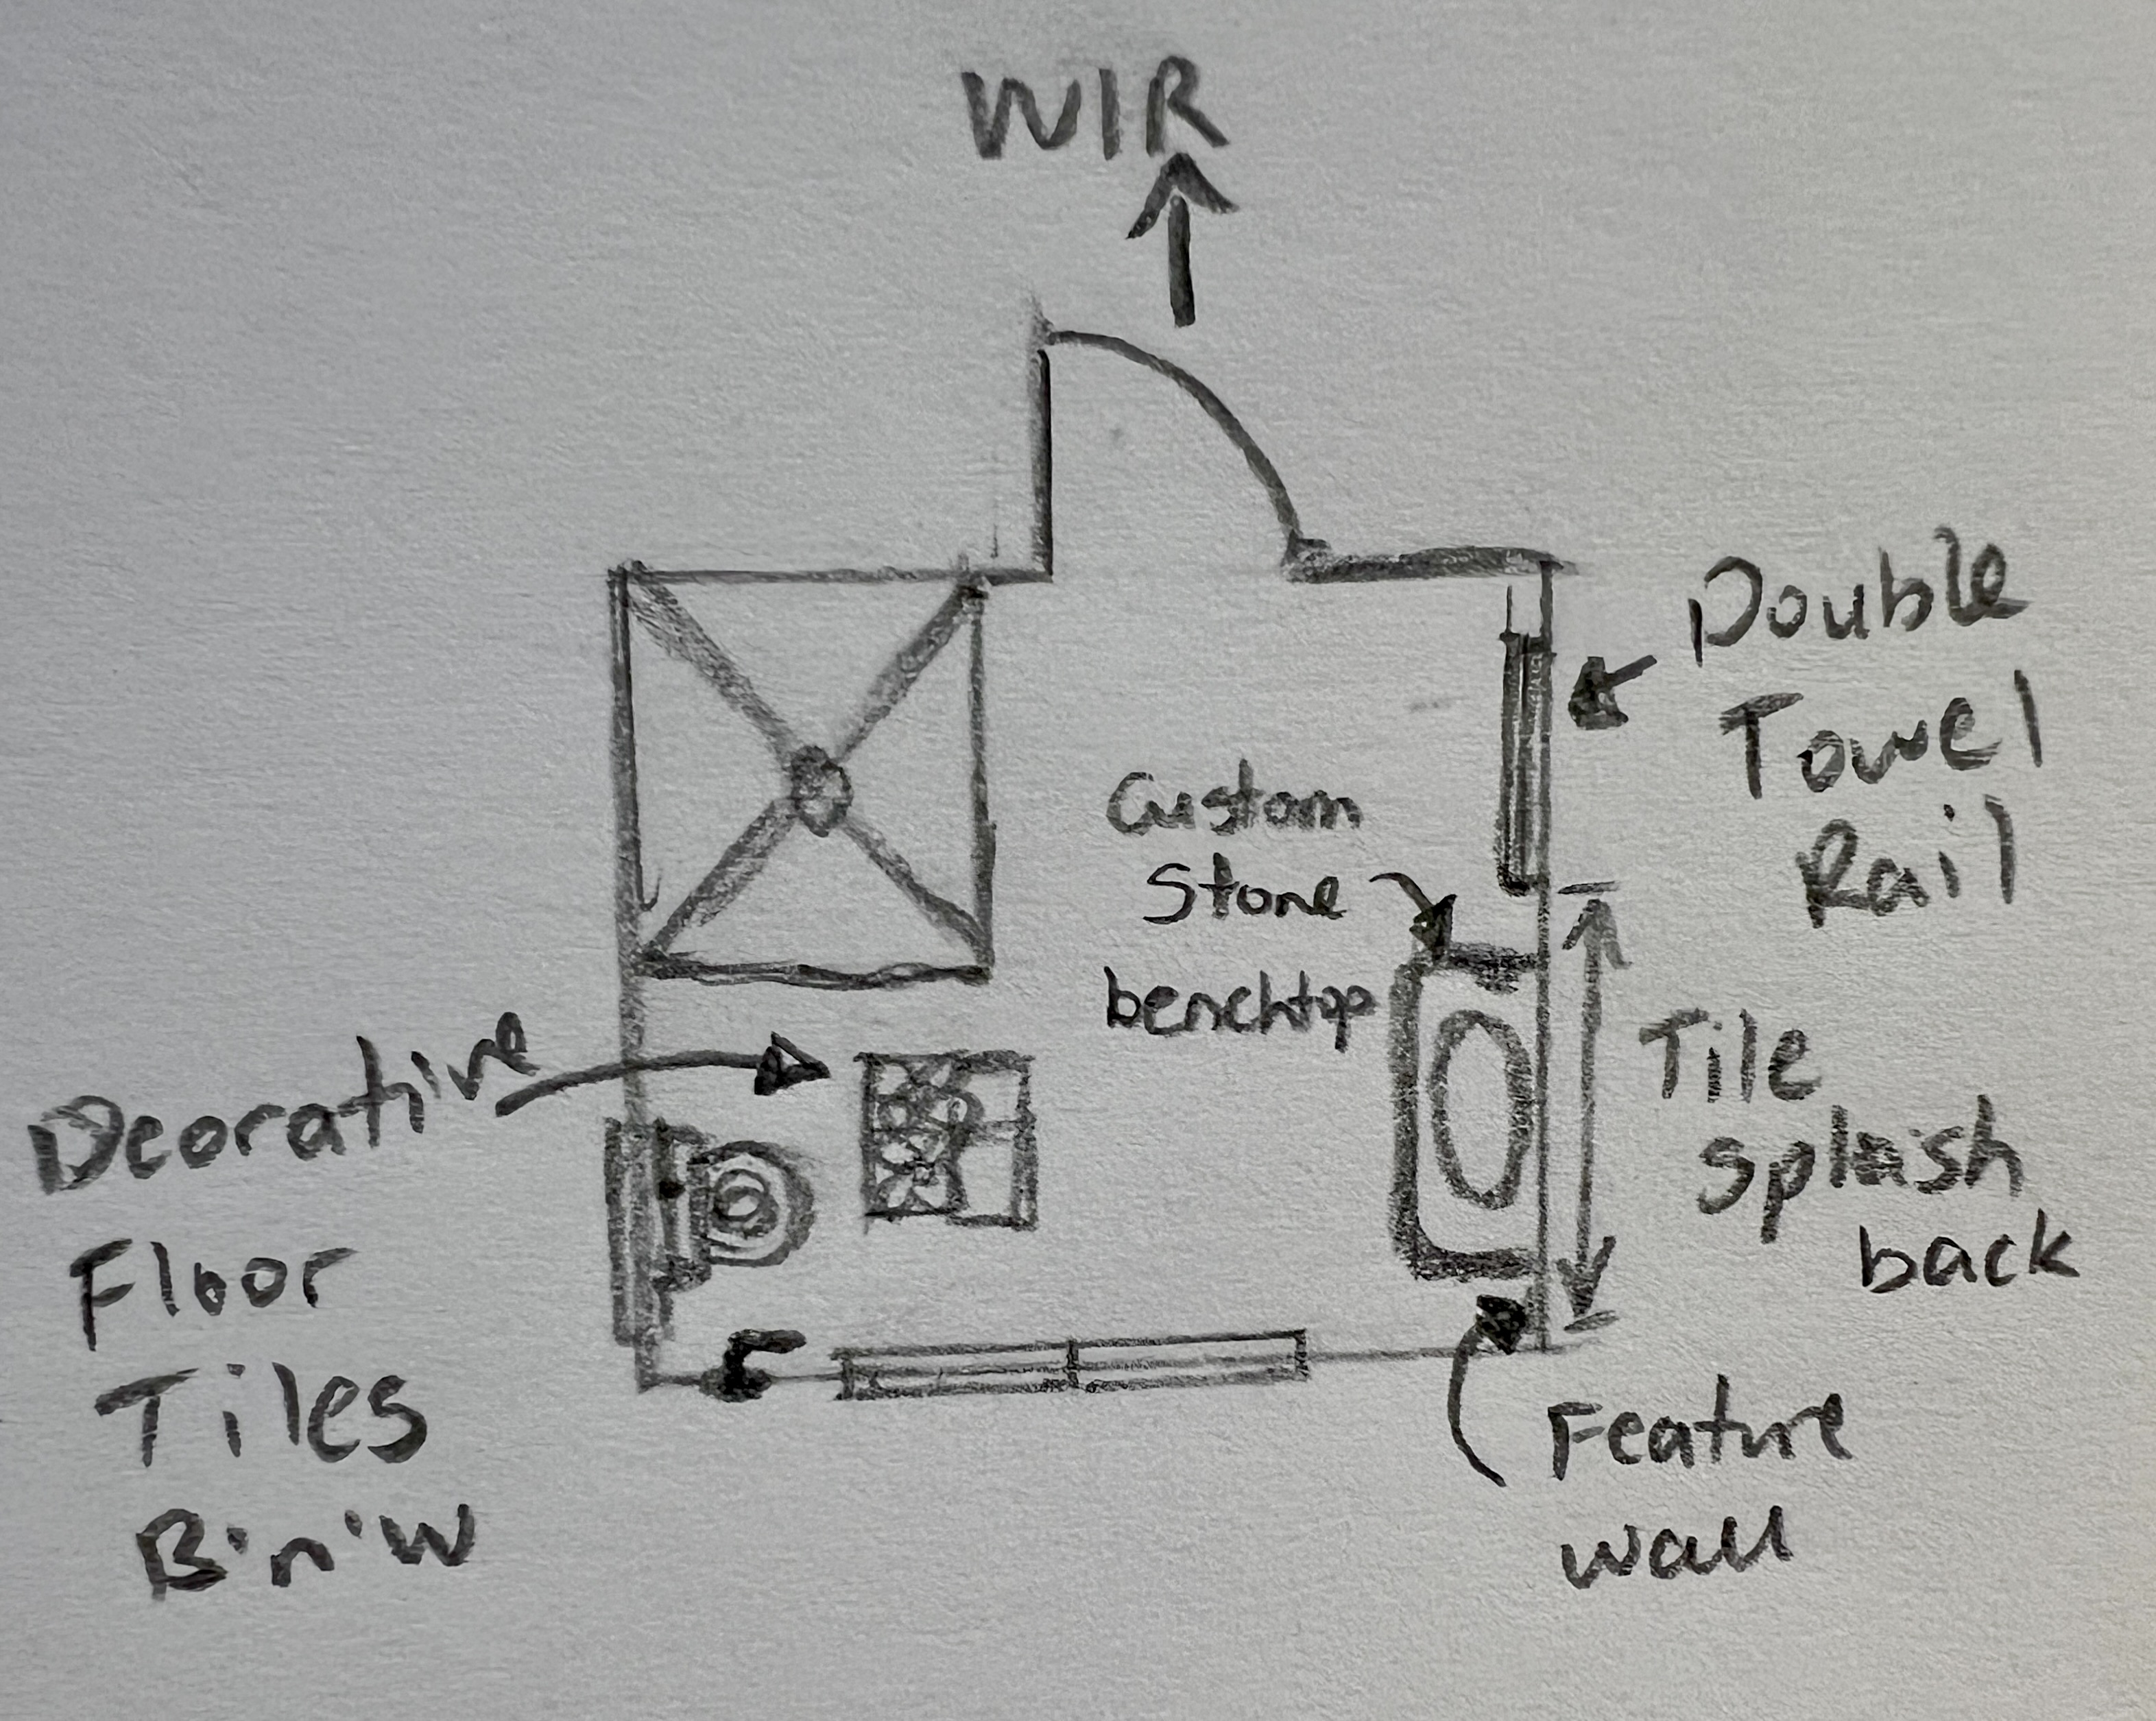 WIR
Double
Towel
Rail
Custom
Stone
benchtop
Tile
splash
back
Decorative
Floor
Tiles
B'n'W
Feature
wall